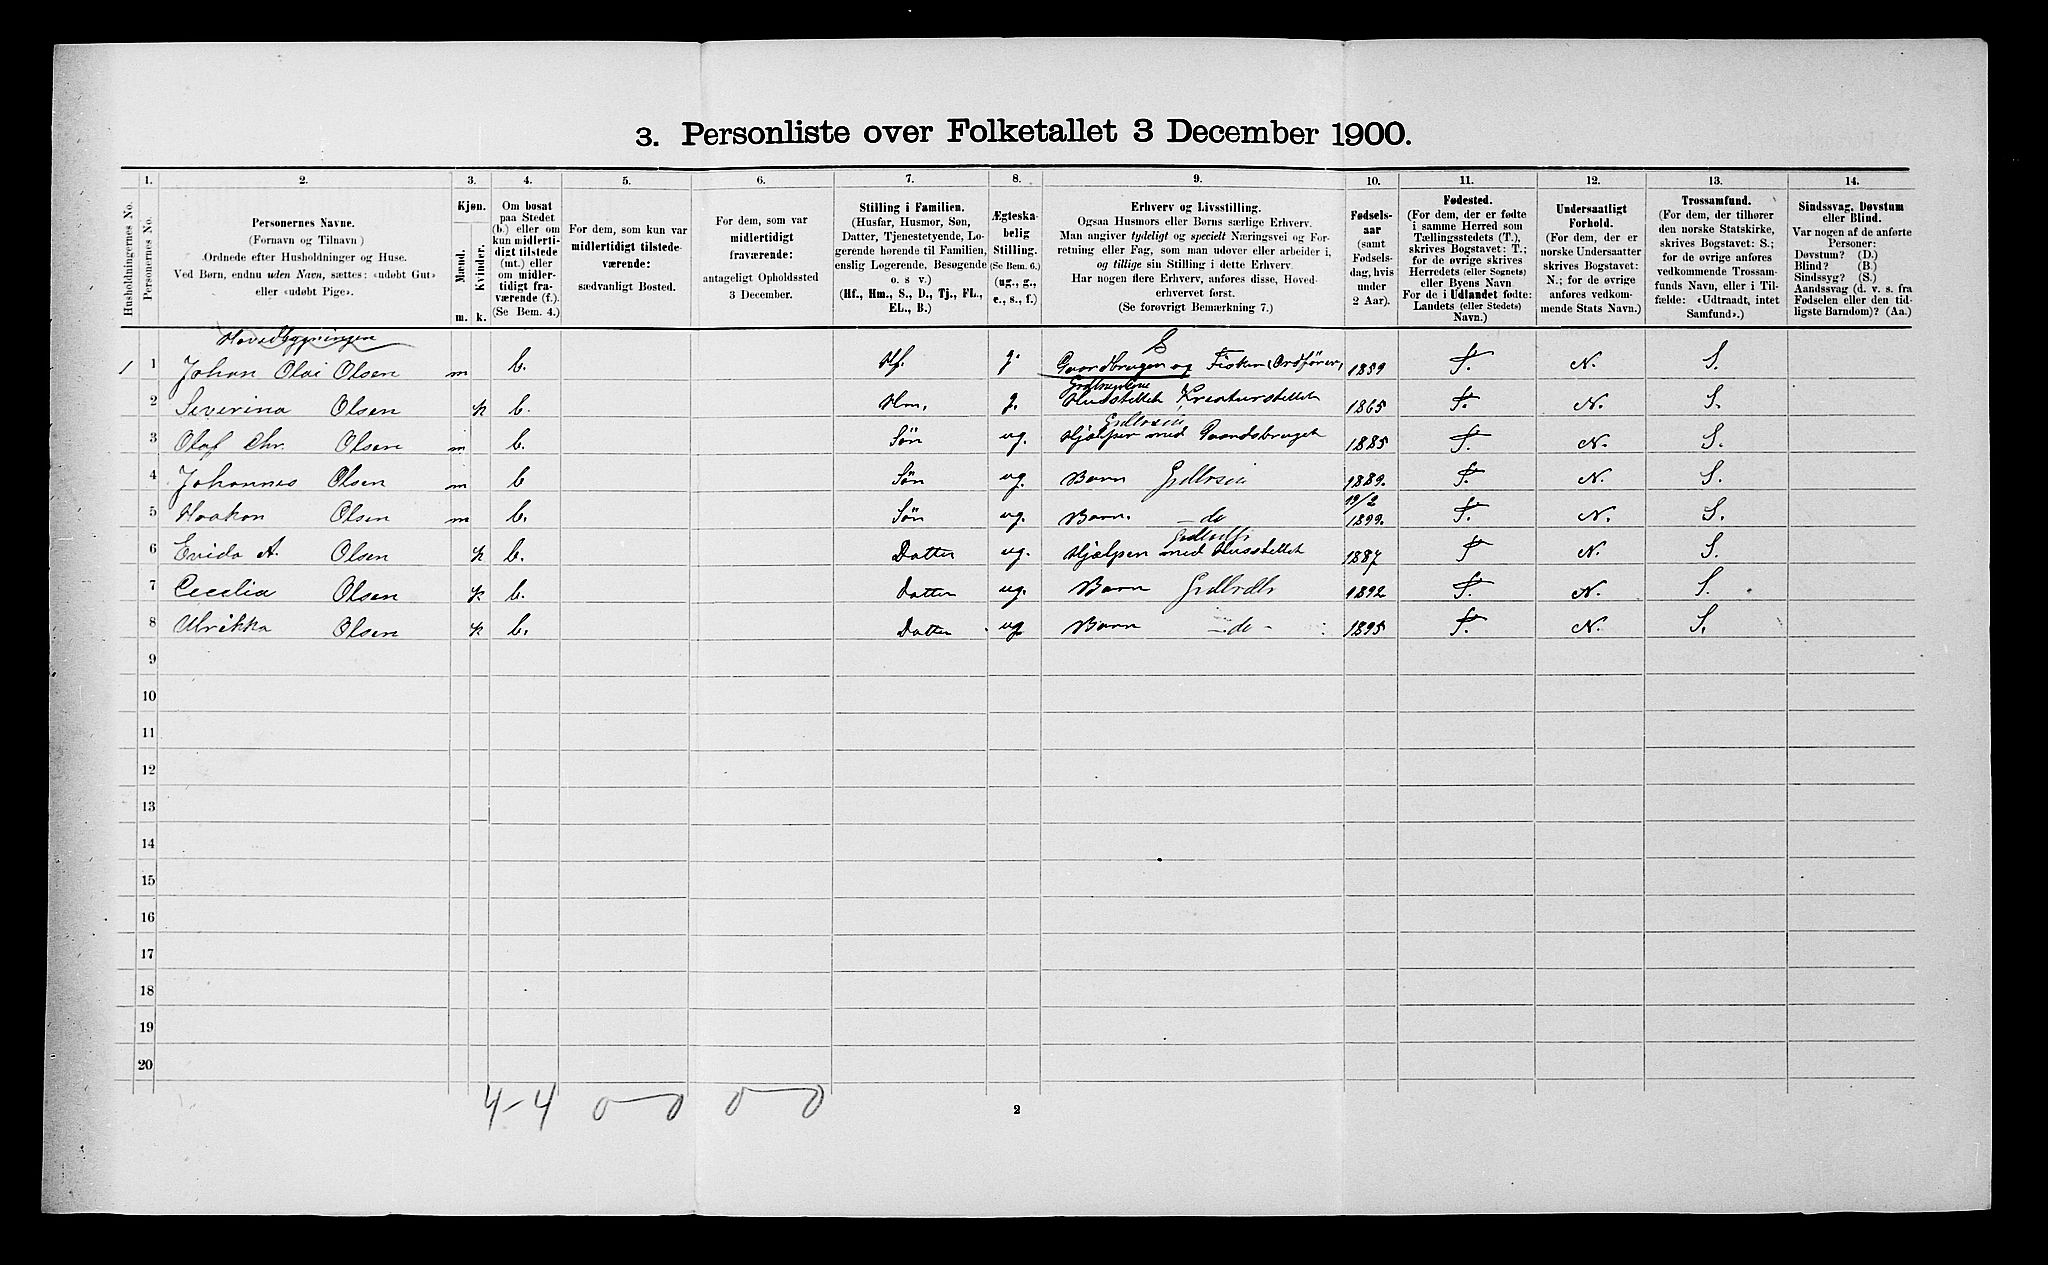 3. Personliste over Folketallet 3 December 1900.
1. 2. 3. 4. 5. 6. 7. 8. 9. 10. 11. 12. 13. 14.
Husholdningernes No.
Personernes No.
Personernes Navne.
(Fornavn og Tilnavn)
Ordnede efter Husholdninger og Huse.
Ved Børn, endnu uden Navn, sættes: «udøbt Gut»
eller «udøbt Pige».
Kjøn.
Mænd.
Kvinder.
m. k.
Om bosat
paa Stedet
(b.) eller om
kun midlerti-
digt tilstede
(mt.) eller
om midler-
tidigt fra-
værende (f.)
(Se Bem. 4.)
For dem, som kun var
midlertidigt tilstede-
værende:
sædvanligt Bosted.
For dem, som var
midlertidigt
fraværende:
antageligt Opholdssted
3 December.
Stilling i Familien.
(Husfar, Husmor, Søn,
Datter, Tjenestetyende, Lo-
gerende hørende til Familien,
enslig Logerende, Besøgende
o. s v.)
(Hf., Hm., S., D., Tj., FL.,
EL., B.)
Ægteska-
belig
Stilling.
(Se Bem. 6.)
(ug., g.,
e., s., f.)
Erhverv og Livsstilling.
Ogsaa Husmors eller Børns særlige Erhverv.
Man angiver tydeligt og specielt Næringsvei og For-
retning eller Fag, som man udøver eller arbeider i,
og tillige sin Stilling i dette Erhverv.
Har nogen flere Erhverv, anføres disse, Hoved-
erhvervet først.
(Se forøvrigt Bemærkning 7.)
Fødsels-
aar
(samt
Fødsels-
dag, hvis
under
2 Aar).
Fødested.
(For dem, der er fødte
i samme Herred som
Tællingsstedets (T.),
skrives Bogstavet: T.;
for de øvrige skrives
Herredets (eller Sognets)
eller Byens Navn
For de i Udlandet fødte:
Landets (eller Stedets)
Navn.)
Undersaatligt
Forhold.
(For dem, der er
norske Undersaatter
skrives Bogstavet:
N.; for de øvrige
anføres vedkom-
mende Stats Navn.)
Trossamfund.
(For dem, der tilhører
den norske Statskirke,
skrives Bogstavet: S.;
for de øvrige anføres
vedkommende Trossam-
funds Navn, eller i Til-
fælde: «Udtraadt, intet
Samfund».)
Sindssvag, Døvstum
eller Blind.
Var nogen af de anførte
Personer:
Døvstum? (D.)
Blind? (B.)
Sindssyg? (S.)
Aandssvag (d. v. s. fra
Fødselen eller den tid-
ligste Barndom)? (Aa.)
Hovedbygningen
1 1 Johan Olai Olsen m b. Hf. g. Gaardbruger og Fisker (Ordfører) 1859 T. N. S.
2 Severina Olsen k b. Hm. g. Husstellet, Kreaturstellet 1865 T. N. S.
3 Olaf Chr. Olsen m b. Søn ug. Hjælper med Gaardsbruget 1885 T. N. S.
4 Johannes Olsen m b Søn ug. Barn 1889. T. N. S.
5 Haakon Olsen m b. Søn ug. Barn. — do 19/2 1899. T. N. S.
6 Evida A. Olsen k b. Datter ug. Hjælper med Husstellet 1887 T N. S.
7 Cecelia Olsen k b. Datter ug. Barn 1892 T. N. S.
8 Ulrikka Olsen k b. Datter ug Barn — do - 1895 T. N. S.
9
10
11
12
13
14
15
16
17
18
19
20
4-4 0-0 0-0
2